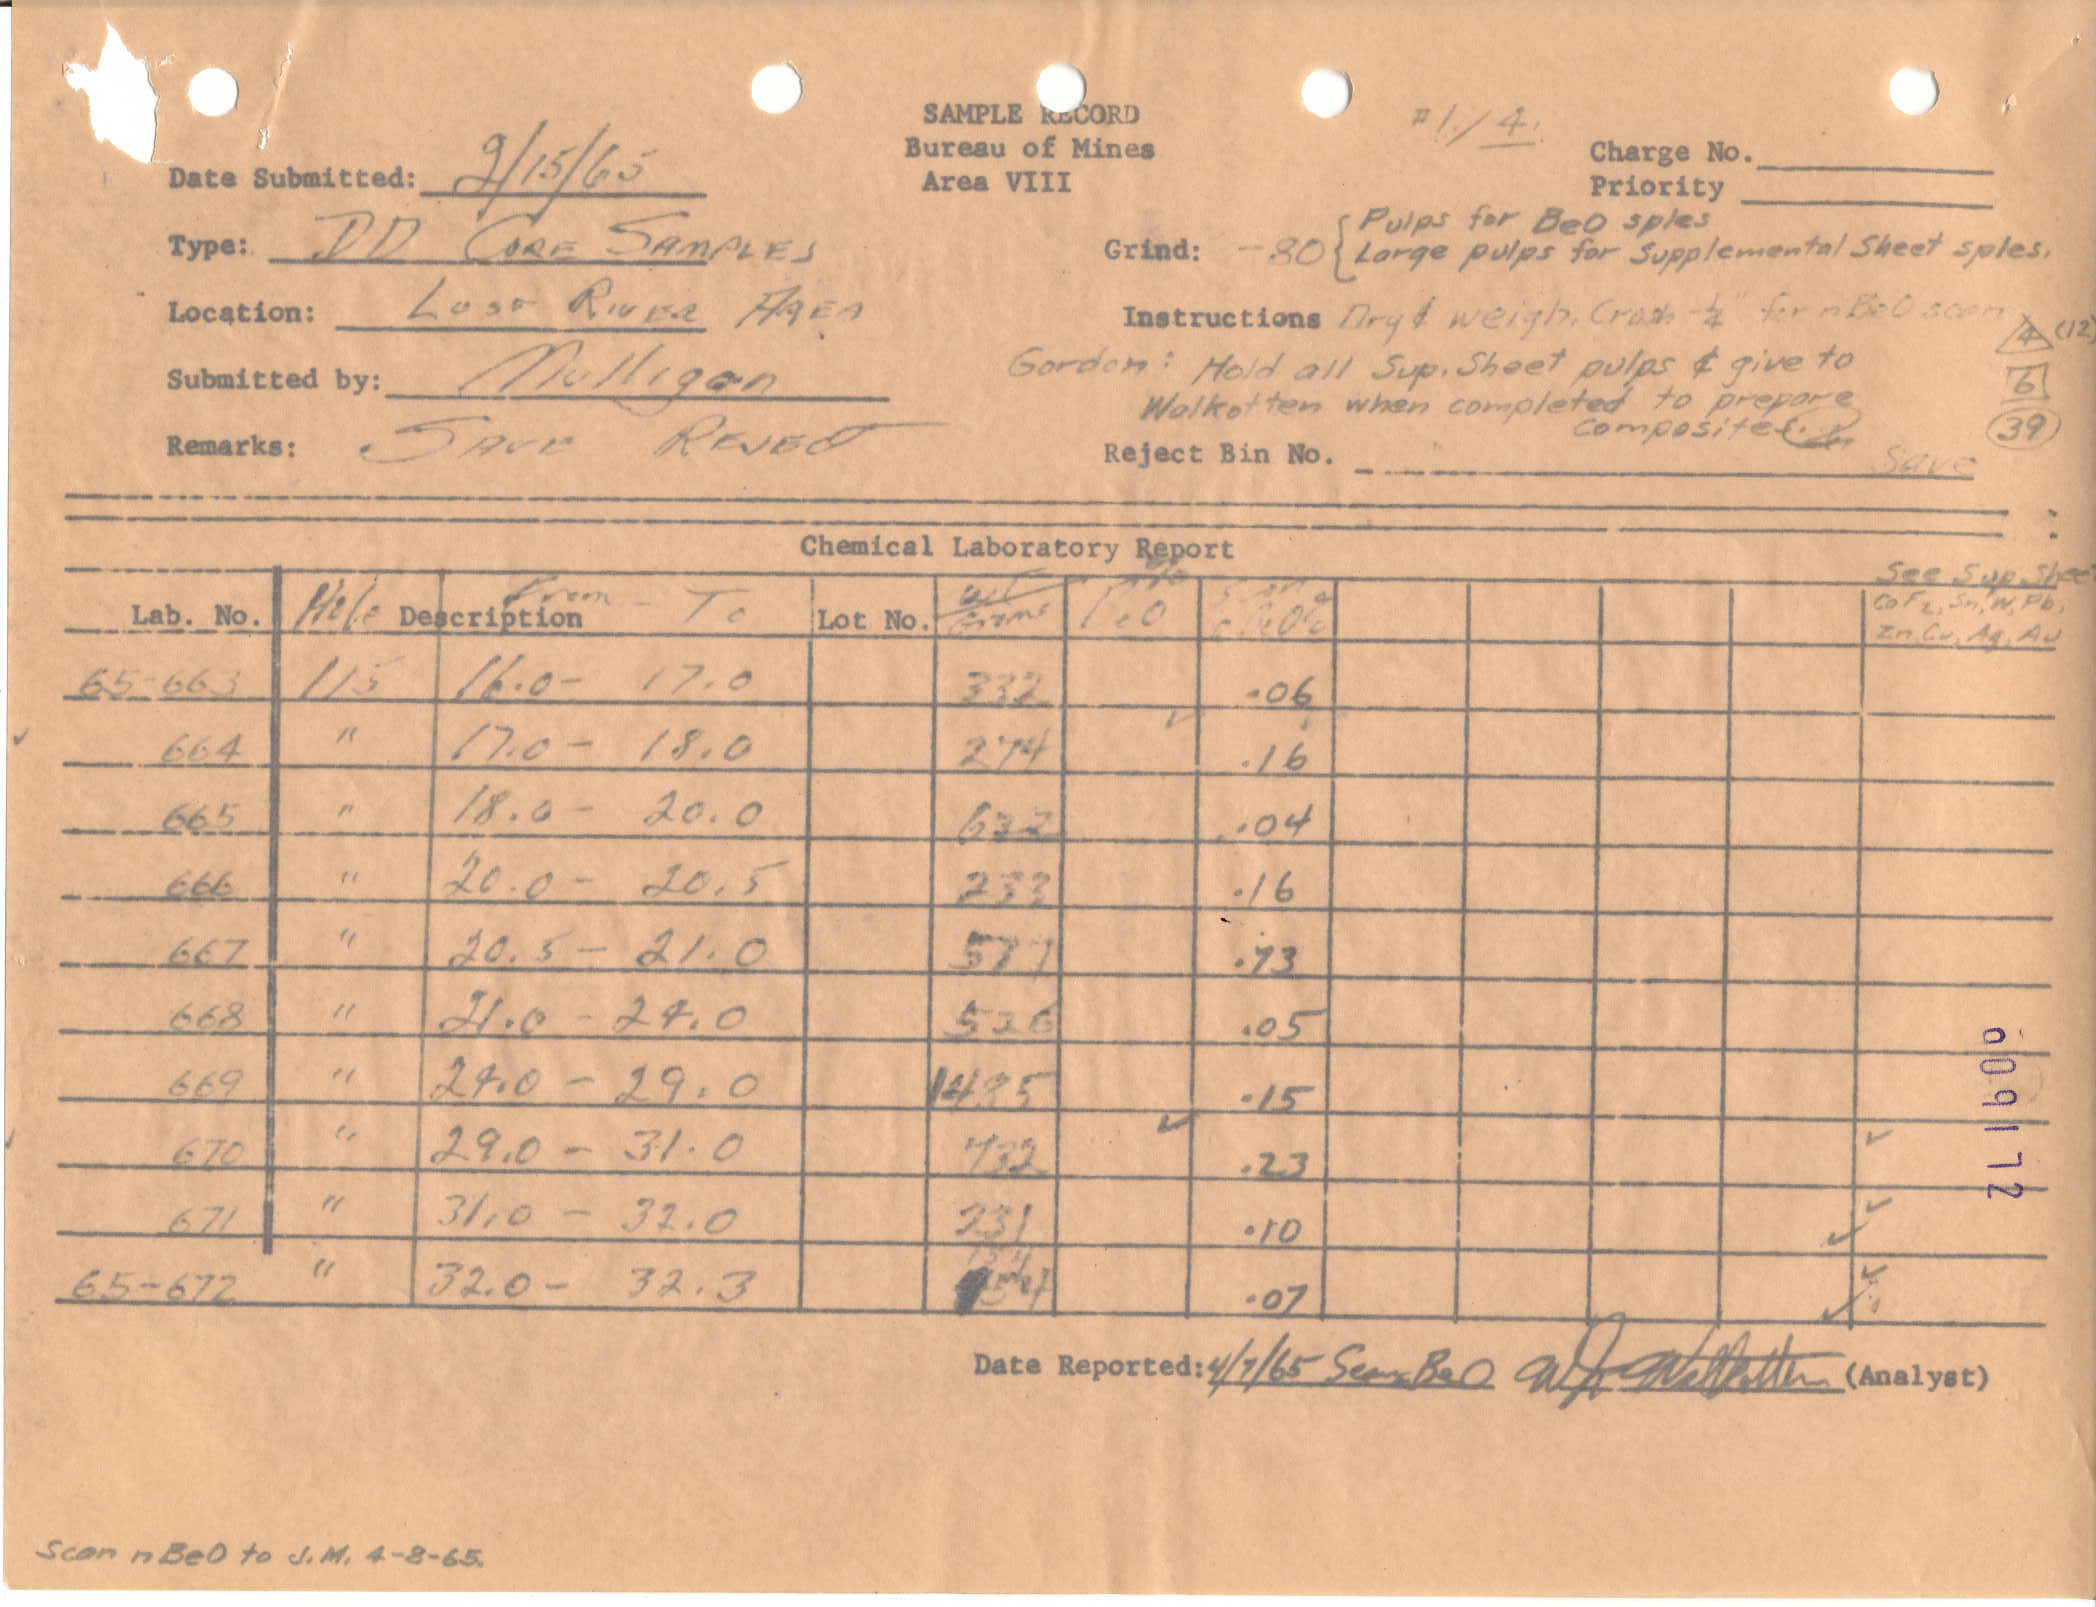 SAMPLE RECORD
Bureau of Mines
Area VIII
#1/4.
Charge No.
Priority
Date Submitted: 2/15/65
Type: DD CORE SAMPLES
Location: LOST RIVER AREA
Submitted by: Mulligan
Remarks: SAVE REJECT
Grind: -80 { Pulps for BeO sples
Large pulps for Supplemental Sheet sples.
Instructions Dry & weigh. Crush -¼" for nBeO scan
4 (12)
Gordon: Hold all Sup. Sheet pulps & give to
6
Walkotten when completed to prepare
composites.
39
Reject Bin No. Save
Chemical Laboratory Report
See Sup. Sheet
Lab. No. Hole Description From - To Lot No. wt Grams % BeO Scan nBeO% CaF2, Sn, W, Pb,
Zn, Cu, Ag, Au
65-663 115 16.0 - 17.0 332 .06
664 " 17.0 - 18.0 274 ✓ .16
665 " 18.0 - 20.0 632 .04
666 " 20.0 - 20.5 233 .16
667 " 20.5 - 21.0 577 .73
668 " 21.0 - 24.0 526 .05
669 " 24.0 - 29.0 1485 .15
670 " 29.0 - 31.0 732 ✓ .23 ✓
671 " 31.0 - 32.0 231 .10 ✓ ✓
65-672 " 32.0 - 32.3 .07 ✓ ✓
Date Reported: 4/7/65 Scan BeO W J Walkotten (Analyst)
Scan nBeO to J.M. 4-8-65.